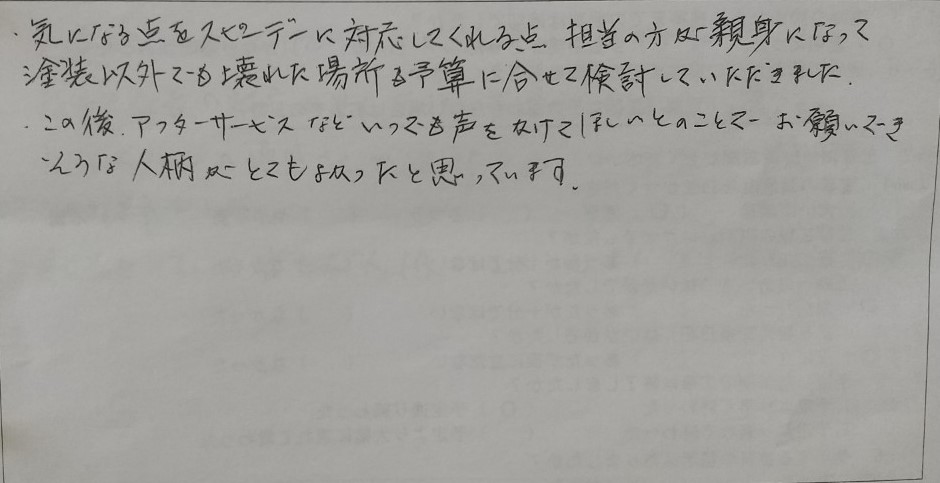 ・気になる点をスピーデーに対応してくれる点 担当の方が親身になって
塗装以外でも壊れた場所も予算に合せて検討していただきました.
・この後、アフターサービスなどいつでも声をかけてほしいとのことで お願いでき
そうな人柄がとてもよかったと思っています.